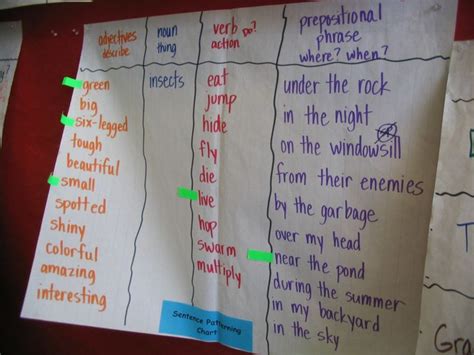 adjectives
describe
noun
thing
verb do?
action
prepositional
phrase
where? when?
green
big
six-legged
tough
beautiful
small
spotted
shiny
colorful
amazing
interesting
insects
eat
jump
hide
fly
die
live
hop
swarm
multiply
under the rock
in the night
on the windowsill
from their enemies
by the garbage
over my head
near the pond
during the summer
in my backyard
in the sky
Sentence Patterning
Chart